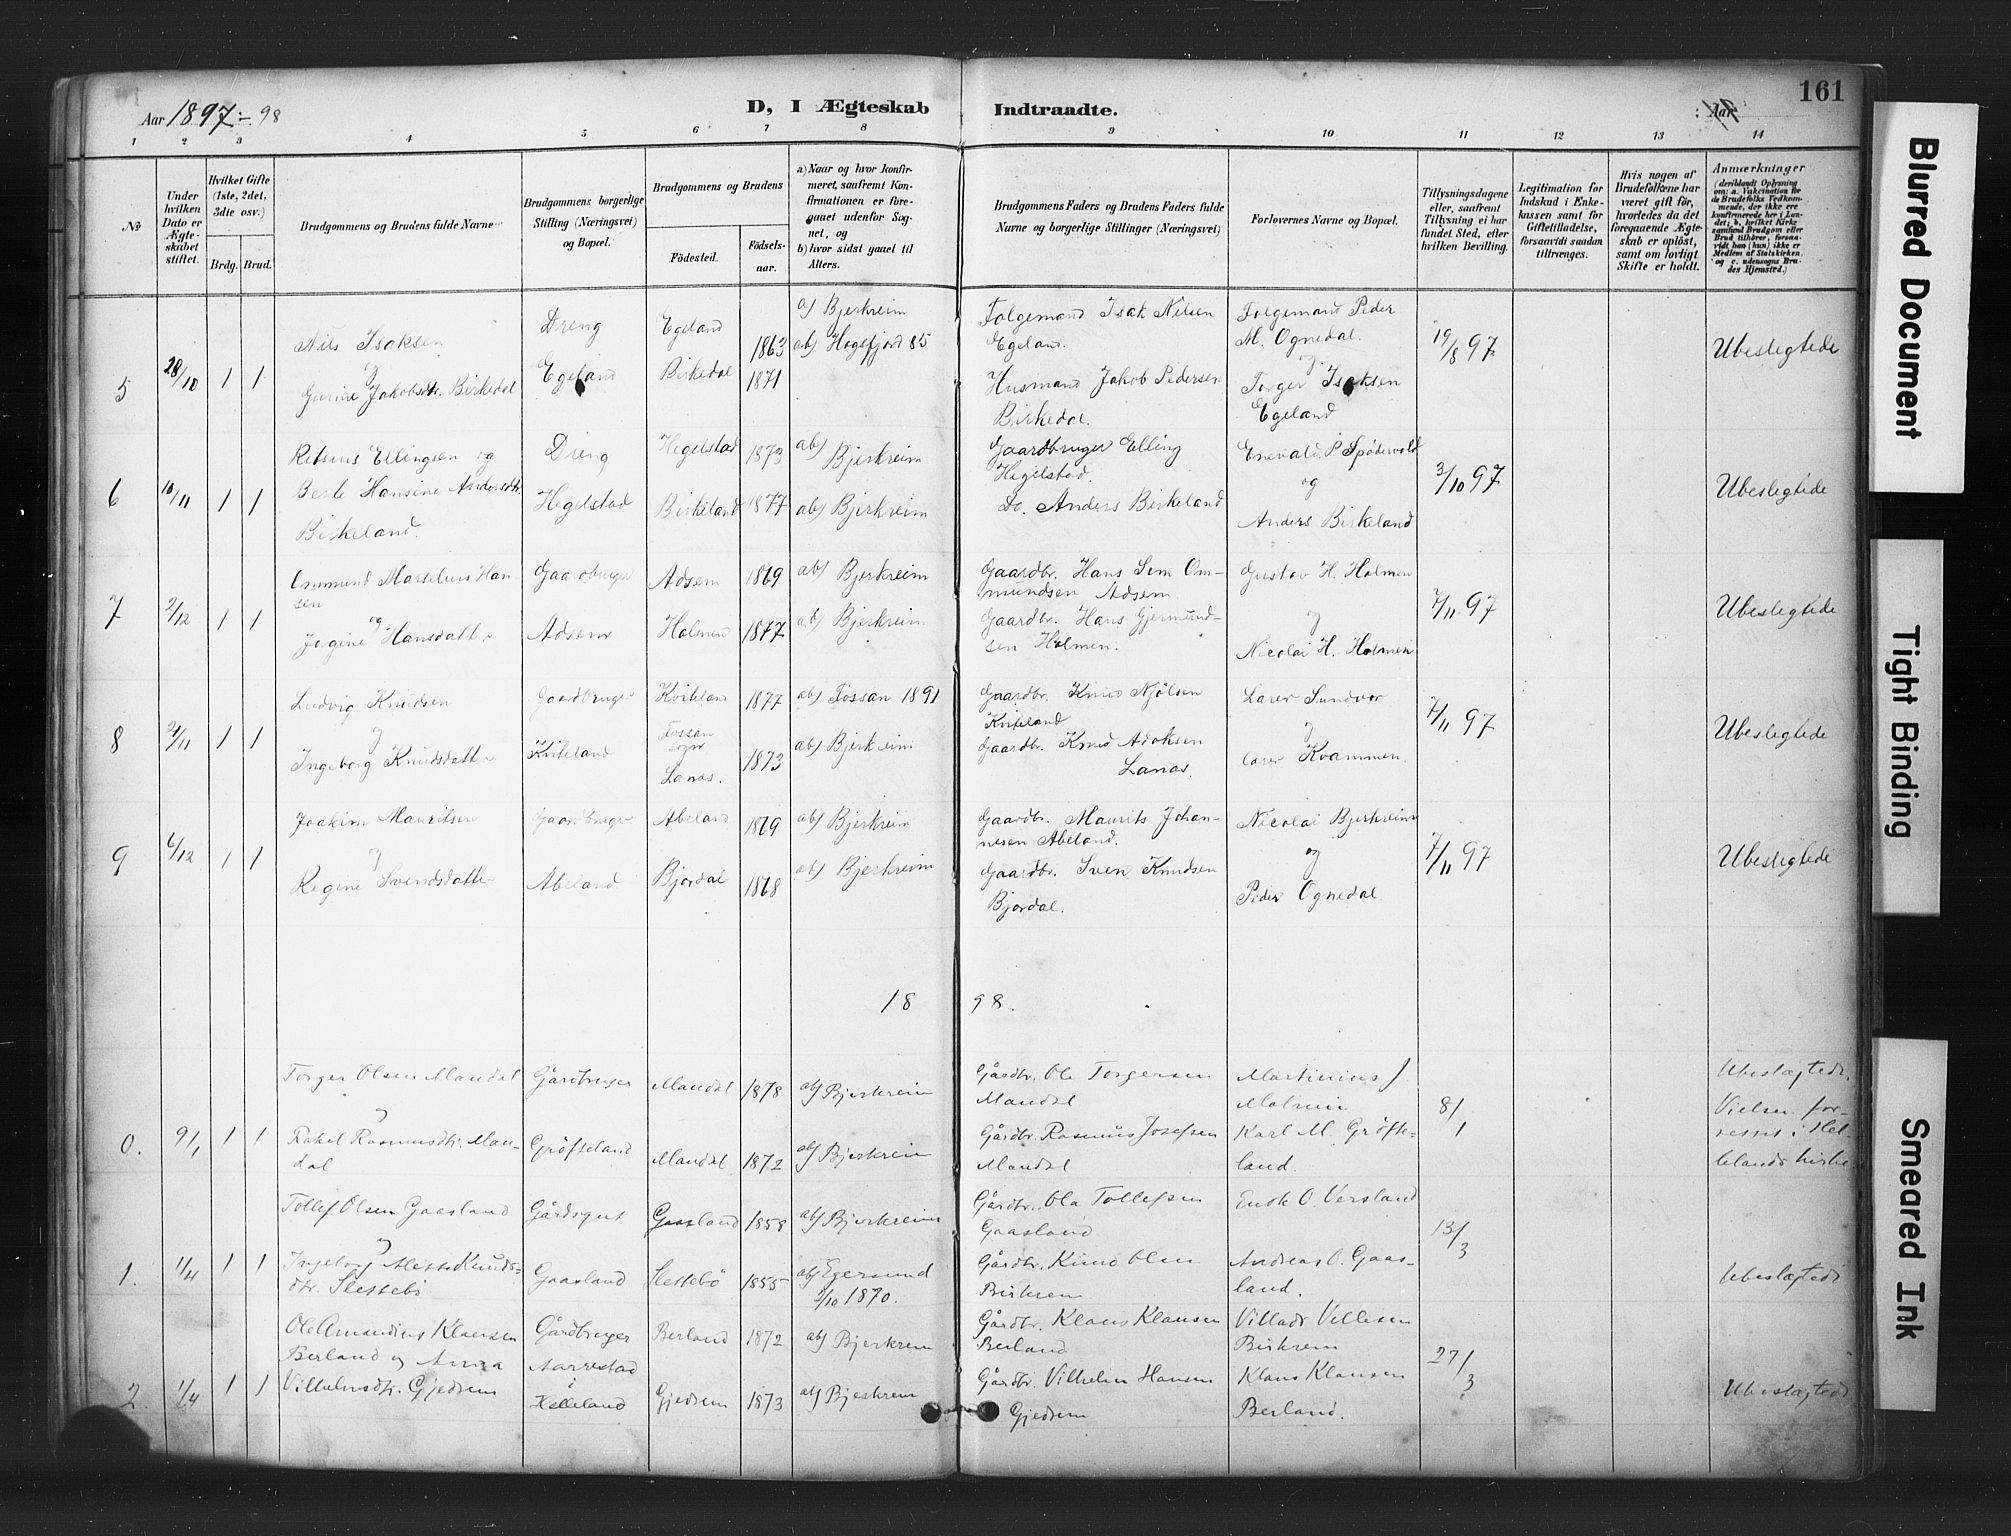 161
Aar 1897-98
D, I Ægteskab Indtraadte.
Aar
1 2 3 4 5 6 7 8 9 10 11 12 13 14
№
Under hvilken Dato er Ægteskabet stiftet.
Hvilket Gifte (1ste, 2det, 3die osv.)
Brdg. Brud.
Brudgommens og Brudens fulde Navne
Brudgommens borgerlige Stilling (Næringsvei) og Bopæl.
Brudgommens og Brudens
Födested.
Födselsaar.
a) Naar og hvor konfirmeret, saafremt Konfirmationen er foregaaet udenfor Sognet, og
b) hvor sidst gaaet til Alters.
Brudgommens Faders og Brudens Faders fulde Navne og borgerlige Stillinger (Næringsvei)
Forlovernes Navne og Bopæl.
Tillysningsdagene eller, saafremt Tillysning ei har fundet Sted, efter hvilken Bevilling.
Legitimation for Indskud i Enkekassen samt for Giftetilladelse, forsaavidt saadan tiltrænges.
Hvis nogen af Brudefolkene har været gift før, hvorledes da det foregaaende Ægteskab er opløst, samt om lovligt Skifte er holdt.
Anmærkninger
(deriblandt Oplysning om: a. Vakcination for de Brudefolks Vedkommende, der ikke ere konfirmerede her i Landet; b. hvilket Kirkesamfund Brudgom eller Brud tilhører, forsaavidt han (hun) ikke er Medlem af Statskirken, og c. udensogns Brudes Hjemsted.)
5 28/10 1 1
Nils Isaksen
og
Gurine Jakobsdtr. Birkedal
Dreng
Egeland
Egeland 1863
Birkedal 1871
a) Bjerkreim
ab) Høgsfjord 85
Folgemand Isak Nilsen
Egeland.
Husmand Jakob Pedersen
Birkedal.
Folgemand Peder
M. Ognedal.
og
Torger Isaksen
Egeland
19/8 97
Ubeslegtede
6 10/11 1 1
Retsius Ellingsen og
Berte Hansine Andersdtr.
Birkeland.
Dreng
Hegelstad
Hegelstad 1873
Birkeland 1877
ab) Bjerkreim
ab) Bjerkreim
Gaardbruger Elling
Hegelstad.
Do. Anders Birkeland
Enevald P. Spödervold
og
Anders Birkeland
3/10 97
Ubeslegtede
7 2/12 1 1
Ommund Marselius Han-
sen
og
Jorgine Hansdatter
Gaardbruger
Adsem
Adsem 1869
Holmen 1877
ab) Bjerkreim
ab) Bjerkreim
Gaardbr. Hans Sim Om-
mundsen Adsem
Gaardbr. Hans Gjermund-
sen Holmen.
Gustav H. Holmen
og
Nicolai H. Holmen
7/11 97
Ubeslegtede
8 24/11 1 1
Ludvig Knudsen
og
Ingeborg Knudsdatter
Gaardbruger
Kviteland
Kviteland 1877
Fossan
sogn
Lanas. 1873
ab) Fossan 1891
ab) Bjerkreim
Gaardbr. Knud Njölsen
Kviteland
Gaardbr. Knud Asoksen
Lanas.
Larer Sundvor
og
Larer Kvammen
7/11 97
Ubeslegtede
9 6/12 1 1
Joakim Mauritsen
og
Regine Svendsdatter
Gaardbruger
Abeland
Abeland 1869
Bjordal 1868
ab) Bjerkreim
ab) Bjerkreim
Gaardbr. Maurits Johan-
nesen Abeland.
Gaardbr. Sven Knudsen
Bjordal.
Nicolai Bjerkreim
og
Peder Ognedal
7/11 97
Ubeslegtede
1898.
0. 9/1 1 1
Torger Olsen Mandal
og
Rakel Rasmusdtr. Man-
dal
Gårdbruger
Gröfteland
Maudal 1878
Maudal 1872
ab) Bjerkreim
ab) Bjerkreim
Gårdbr. Ole Torgersen
Maudal
Gårdbr. Rasmus Josefsen
Maudal
Martinius J.
Malmin
Karl M. Gröfte-
land.
8/1
Ubeslægtede.
Vielsen for-
rettet i Hel-
lelands kirke
1. 1/4 1 1
Tollef Olsen Gaasland
og
Ingeborg Knuds-
dtr. Slettebö
Gårdsgut
Gaasland
Gaasland 1858
Slettebö 1855
ab) Bjerkreim
ab) Egersund
2/10 1870.
Gårdbr. Ola Tollefsen
Gaasland
Gårdbr. Knud Olsen
Birkrem
Endk O. Versland
Andreas O. Gaas-
land.
13/3
Ubeslægtede
2. 1/4 1 1
Ole Amandius Klausen
Berland og Anna
Vilhelmsdtr. Gjedrem
Gårdbruger
Aarrestad
i
Helleland
Berland 1872
Gjedrem 1873
ab) Bjerkrem
ab) Bjerkrem
Gårdbr. Klaus Klausen
Berland
Gårdbr. Vilhelm Hansen
Gjedrem
Villads Vellesen
Birkrem
Klaus Klausen
Berland.
27/3
Ubeslægtede
Blurred Document
Tight Binding
Smeared Ink